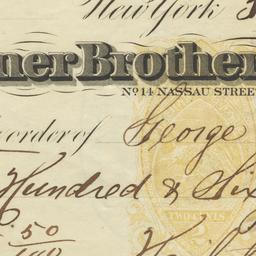 New York
ner Brothe
No 14 NASSAU STREE
order of George
Hundred & Six
50
100
TWO CENTS